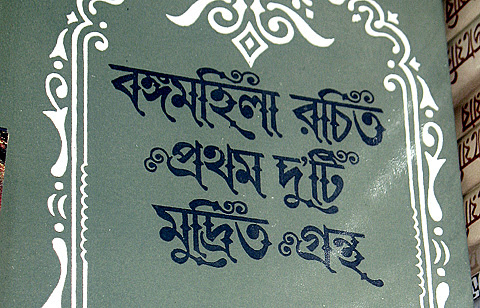 বঙ্গমহিলা রচিত
প্রথম দু'টি
মুদ্রিত গ্রন্থ